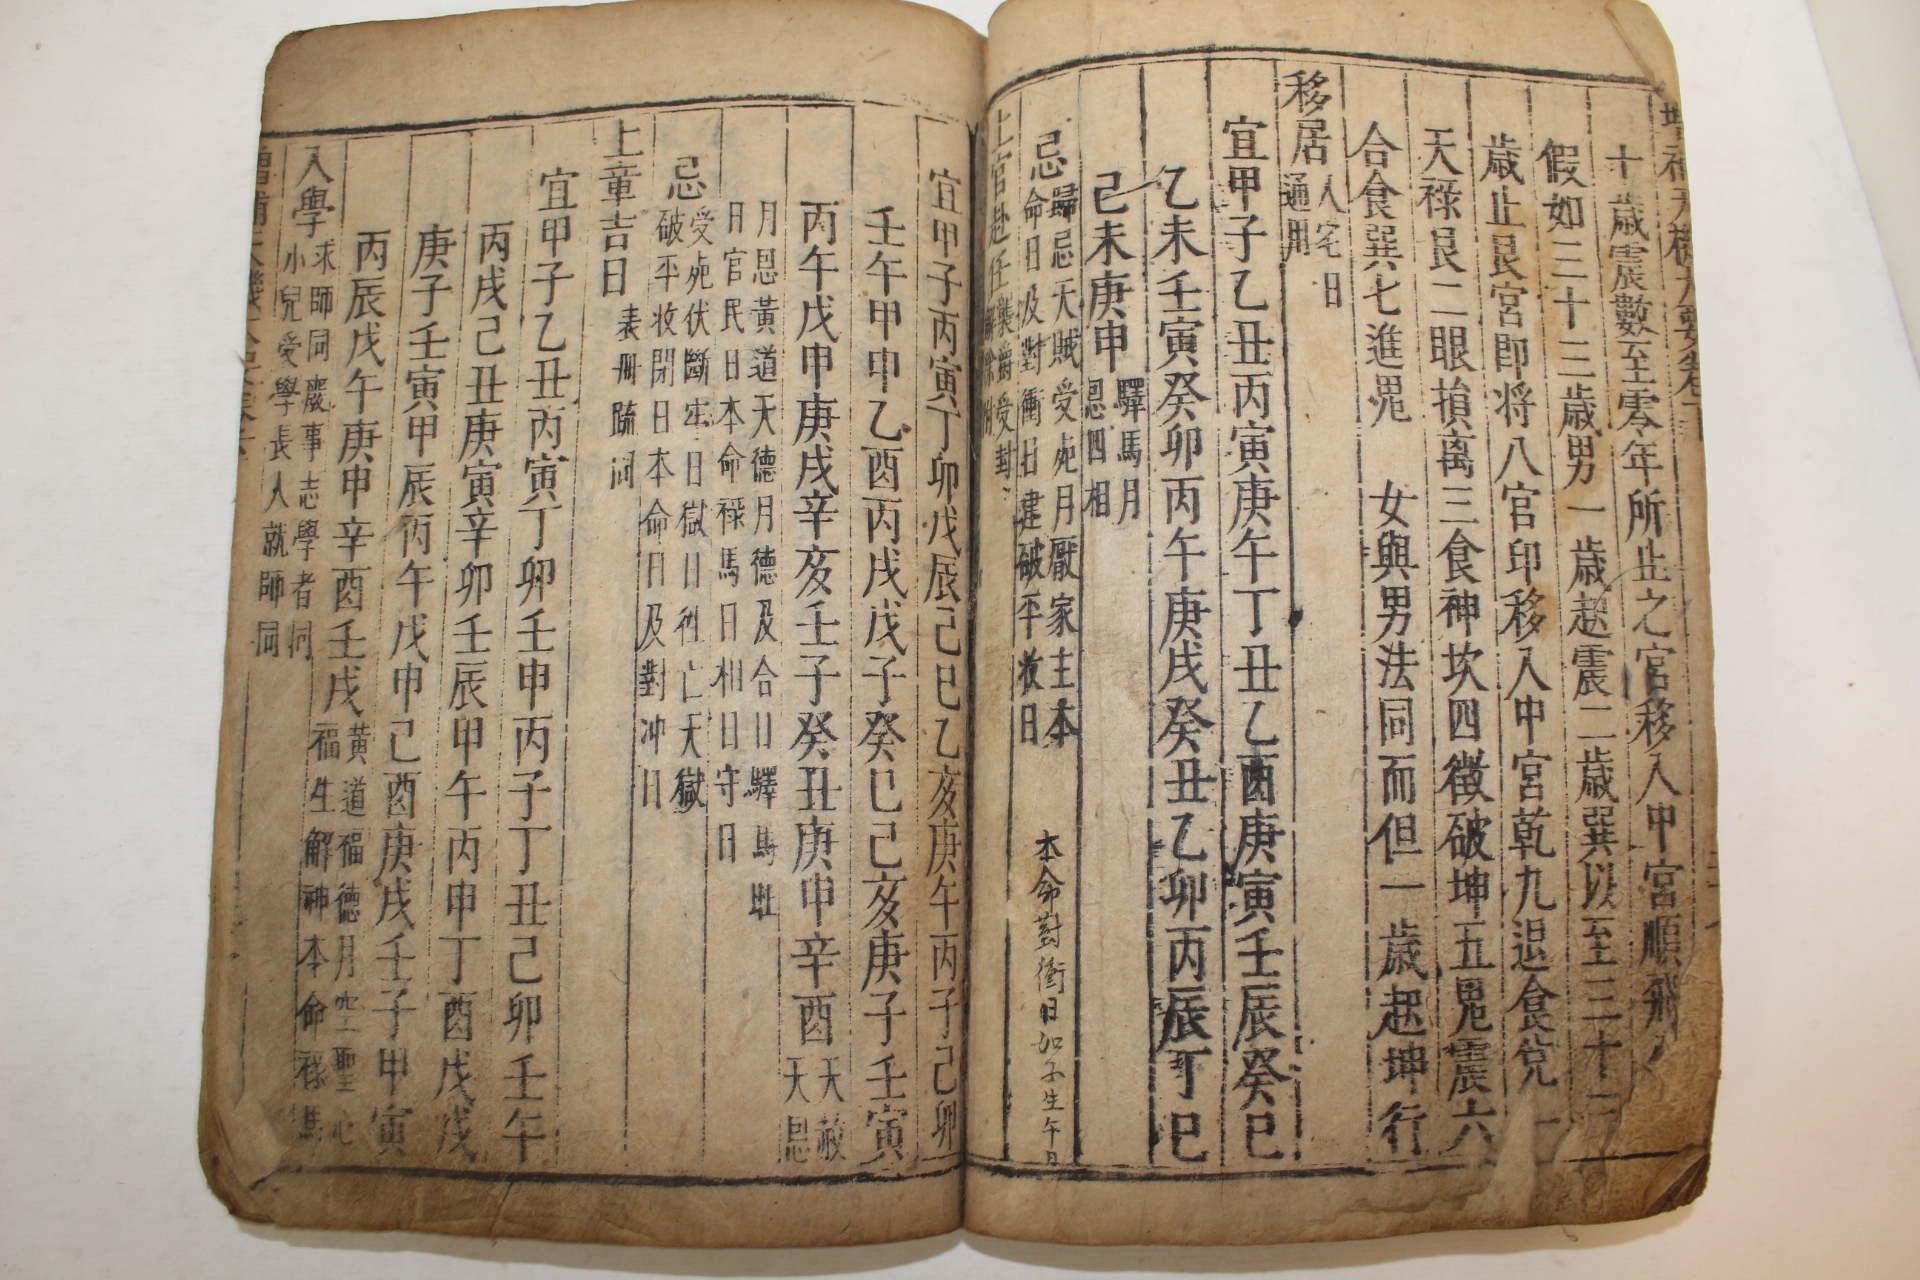 十歲震數至零年所止之宮移入中宮順飛
假如三十三歲男一歲起震二歲巽以至三十三
歲止艮宮即將八宮印移入中宮乾九退食兌一
天祿艮二眼損离三食神坎四徵破坤五鬼震六
合食巽七進鬼 女與男法同而但一歲起坤行
移居入宅日通用
宜甲子乙丑丙寅庚午丁丑乙酉庚寅壬辰癸巳
乙未壬寅癸卯丙午庚戌癸丑乙卯丙辰丁巳
己未庚申驛馬月恩四相
忌歸忌天賊受死月厭家主本命日及對衝日建破平收日
本命對衝日如子生午日
上官赴任襲爵受封
宜甲子丙寅丁卯戊辰己巳乙亥庚午丙子己卯
壬午甲申乙酉丙戌戊子癸巳己亥庚子壬寅
丙午戊申庚戌辛亥壬子癸丑庚申辛酉天赦天恩
月恩黃道天德月德及合日驛馬
日官民日本命祿馬日相日守日
忌受死伏斷牢日獄日徒亡天獄破平收閉日本命日及對冲日
上章吉日表册疏詞
宜甲子乙丑丙寅丁卯壬申丙子丁丑己卯壬午
丙戌己丑庚寅辛卯壬辰甲午丙申丁酉戊戌
庚子壬寅甲辰丙午戊申己酉庚戌壬子甲寅
丙辰戊午庚申辛酉壬戌黃道福德月空聖心福生解神本命祿馬
入學求師同嚴事志學者同小兒受學長人就師同